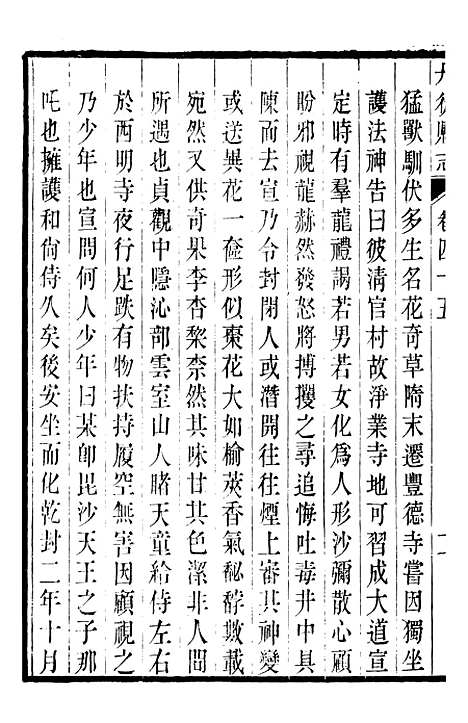 丹徒縣志
卷四十五
猛獸馴伏多生名花奇草隋末遷豐德寺嘗因獨坐
護法神告曰彼清官村故淨業寺地可習成大道宣
定時有羣龍禮謁若男若女化為人形沙彌散心顧
盼邪視龍赫然發怒將搏攖之尋追悔吐毒井中具
陳而去宣乃令封閉人或潛開往往煙上審其神變
或送異花一奩形似棗花大如榆莢香氣馝馞數載
宛然又供奇果李杏棃柰然其味甘其色潔非人間
所遇也貞觀中隱沁部雲室山人睹天童給侍左右
於西明寺夜行足跌有物扶持履空無害因顧視之
乃少年也宣問何人少年曰某卽毘沙天王之子那
吒也擁護和尙侍久矣後安坐而化乾封二年十月